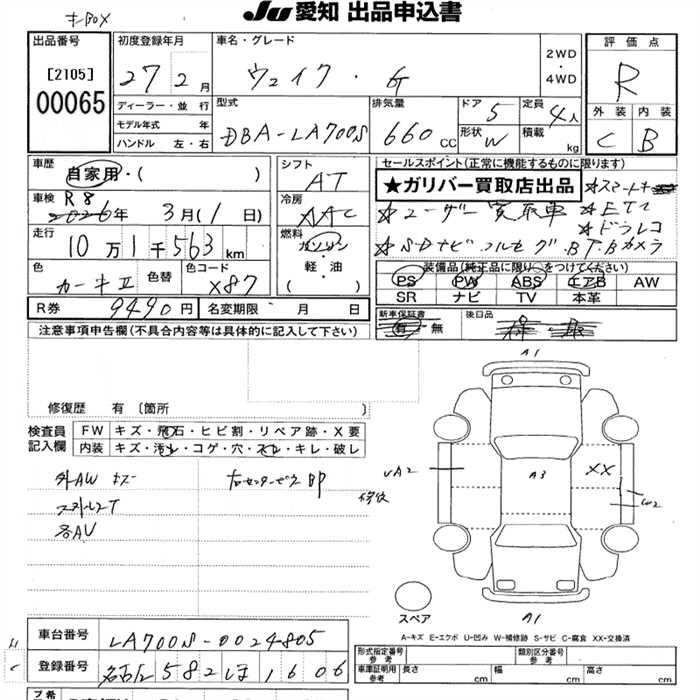 キBOX
Ju 愛知 出品申込書
出品番号
[2105]
00065
初度登録年月
27 2月
ディーラー・並行
モデル年式 年
ハンドル 左・右
車名・グレード
ウェイク・G
2WD
・
4WD
型式
DBA-LA700S
排気量
660 CC
ドア
5
形状
W
定員
4人
積載
kg
評価点
R
外装 内装
C B
車歴
自家用・( )
車検
R8
2026年 3月(1日)
走行
10万1千563km
色
カーキⅡ
色替
色コード
X87
R券 9490円
名変期限 月 日
シフト
AT
冷房
AAC
燃料
ガソリン
軽・油
( )
セールスポイント(正常に機能するものに限ります)
★ガリバー買取店出品
☆スマートキー
☆ユーザー買取車 ☆ETC
☆ドラレコ
☆SDナビ フルセグ.BT.Bカメラ
装備品(純正品に限り○をつけてください)
PS PW ABS エアB AW
SR ナビ TV 本革
新車保証書
有・無
後日品
保・取
注意事項申告欄(不具合内容等は具体的に記入して下さい)
修復歴 有〔箇所 〕
検査員
記入欄
FW キズ・飛石・ヒビ割・リペア跡・X要
内装 キズ・汚れ・コゲ・穴・スレ・キレ・破レ
外AW キズ
スペアレスT
各AU
右センターピラBP
A1
UA2
修復
A3
XX
A1
スペア
A-キズ E-エクボ U-凹み W-補修跡 S-サビ C-腐食 XX-交換済
車台番号 LA700S-0024805
登録番号 名古屋582ほ1606
形式指定番号
参考
類別区分番号
参考
車庫証明用
参考
長さ cm 幅 cm 高さ cm